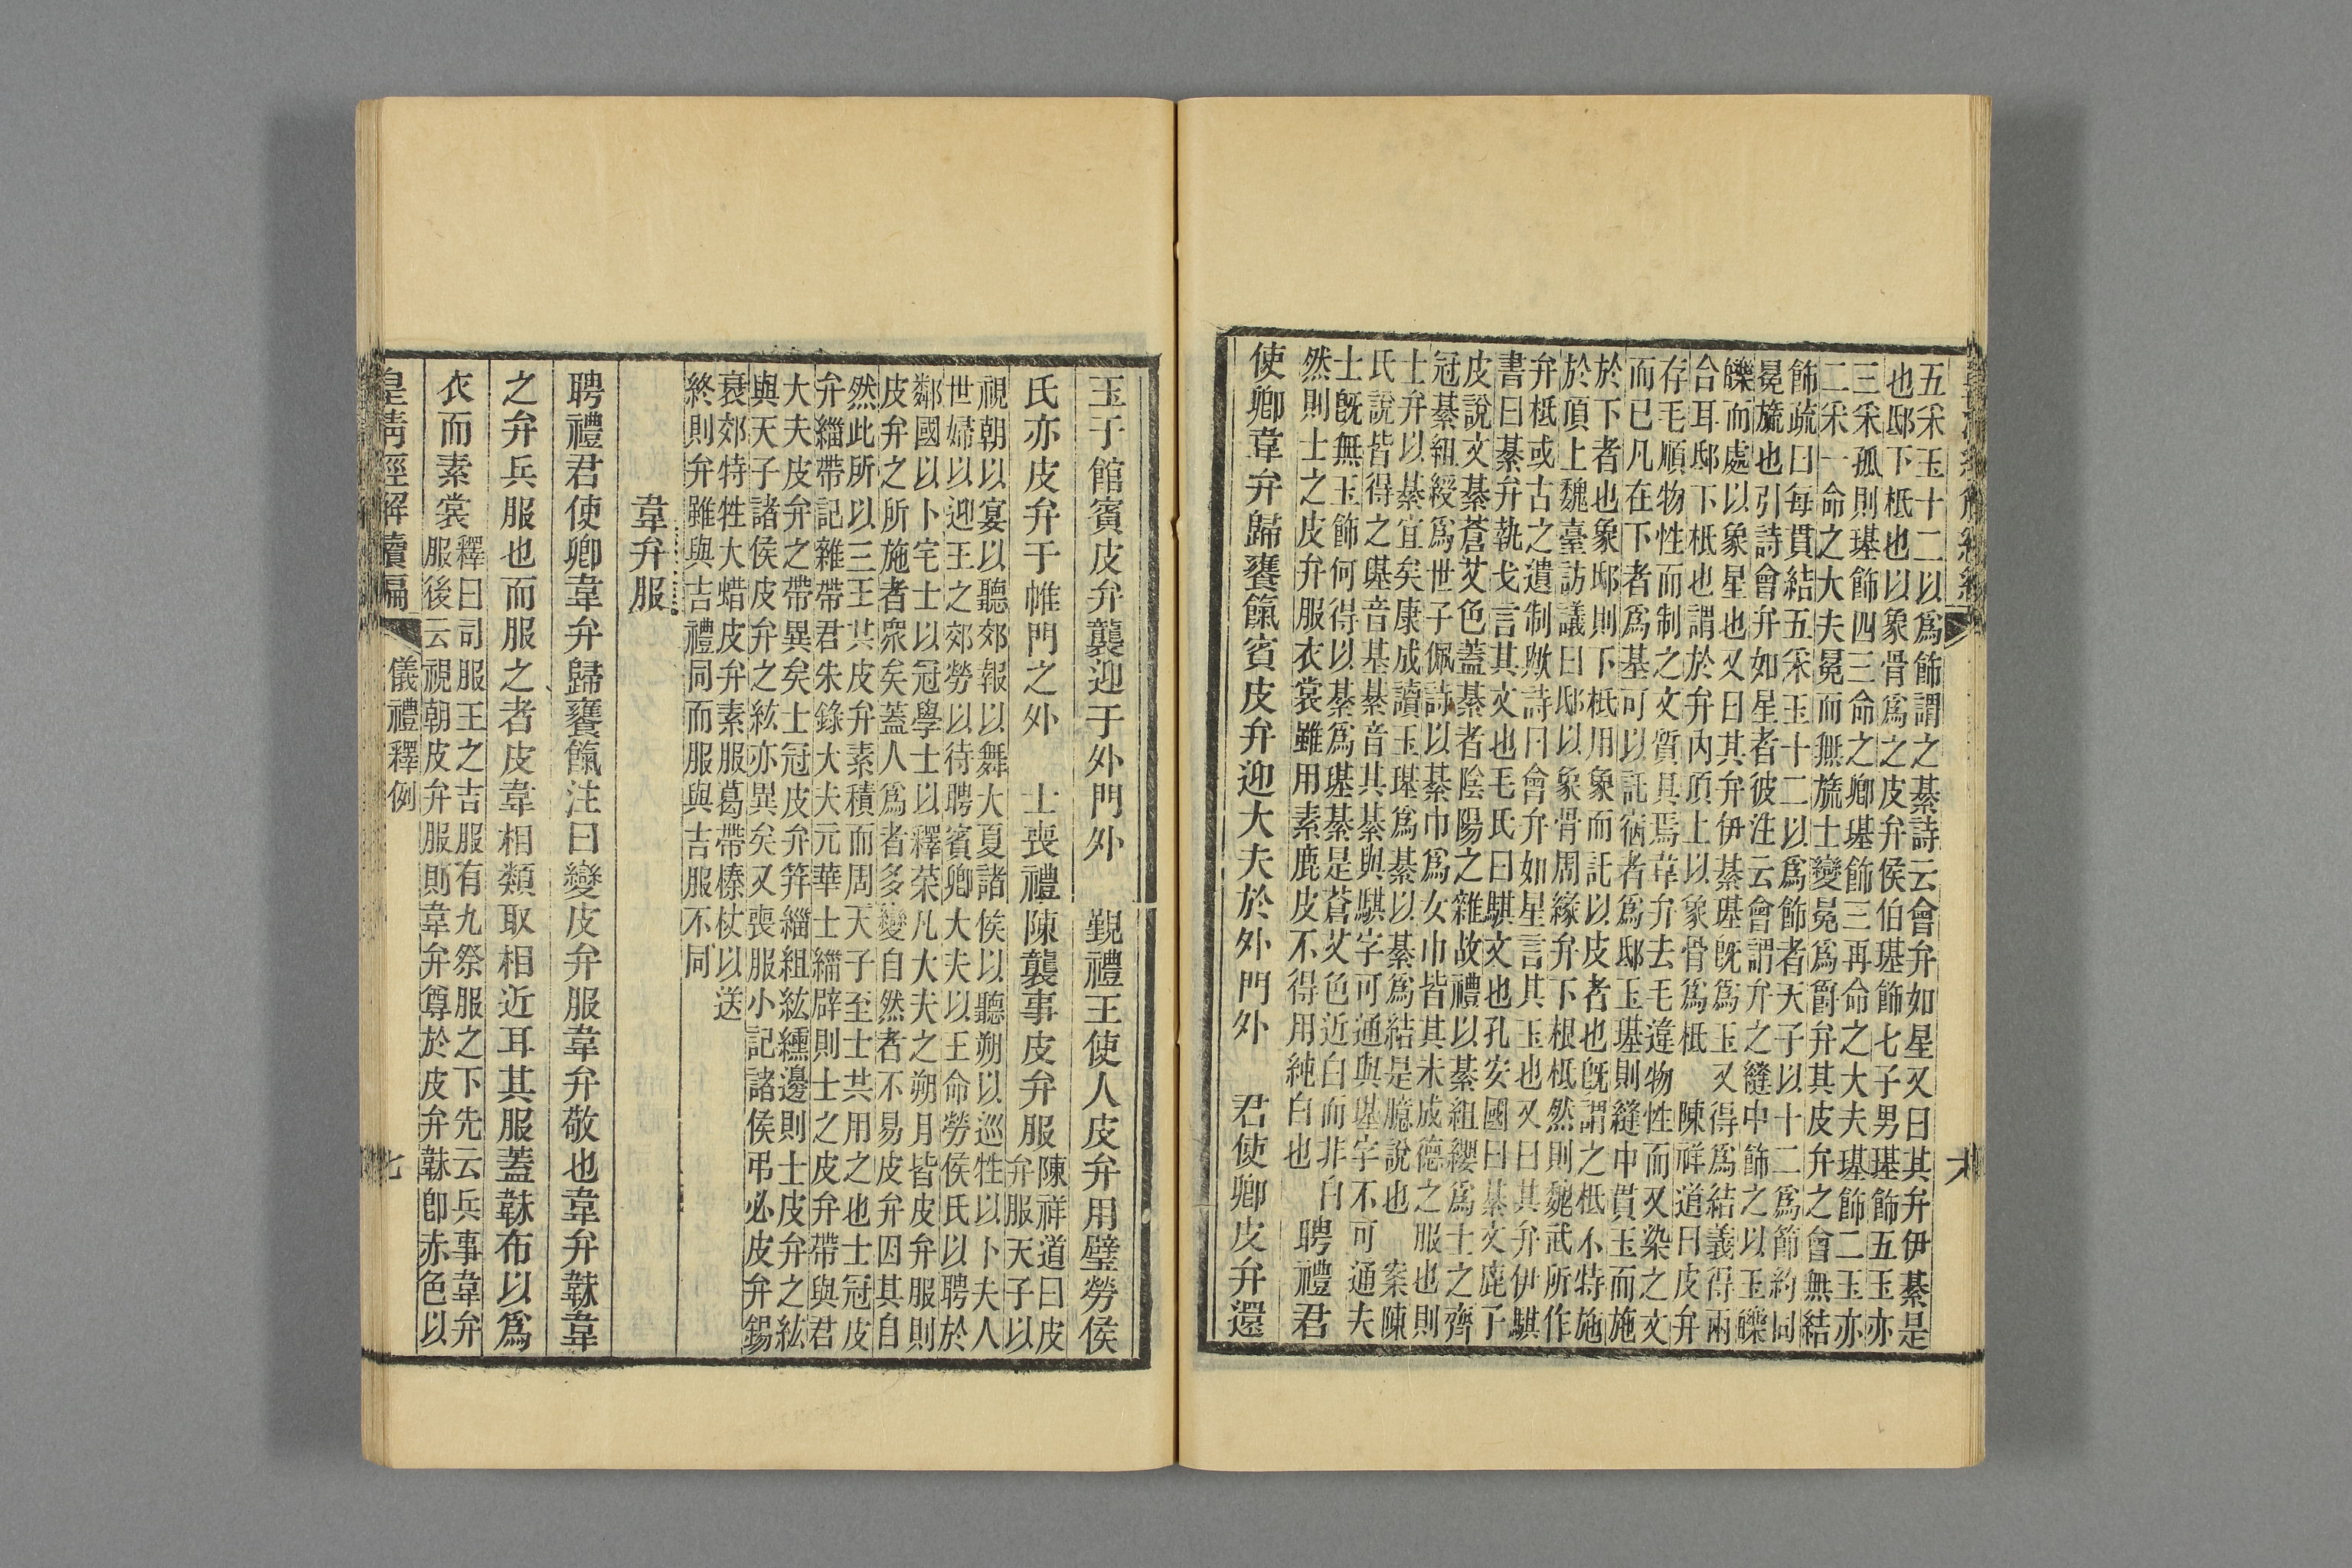 五采玉十二以爲飾謂之綦詩云會弁如星又曰其弁伊綦是
也邸下柢也以象骨爲之皮弁侯伯璂飾七子男璂飾五玉亦
三采孤則璂飾四三命之卿璂飾三再命之大夫璂飾二玉亦
二采一命之大夫冕而無旒士變冕爲爵弁其皮弁之會無結
飾疏曰每貫結五采玉十二以爲飾者天子以十二爲節約同
冕旒也引詩會弁如星者彼注云會謂弁之縫中飾之以玉皪
皪而處以象星也又曰其弁伊綦璂旣爲玉又得爲結義得兩
合耳邸下柢也謂於弁內頂上以象骨爲柢 陳祥道曰皮弁
存毛順物性而制之文質具焉韋弁去毛違物性而又染之文
而已凡在下者爲基可以託宿者爲邸玉璂則縫中貫玉而施
於下者也象邸則下柢用象而託以皮者也旣謂之柢不特施
於頂上魏臺訪議曰邸以象骨周緣弁下根柢然則魏武所作
弁柢或古之遺制歟詩曰會弁如星言其玉也又曰其弁伊騏
書曰綦弁執戈言其文也毛氏曰騏文也孔安國曰綦文鹿子
皮說文綦蒼艾色蓋綦者陰陽之雜故禮以綦組纓爲士之齊
冠綦組綬爲世子佩詩以綦巾爲女巾皆其未成德之服也則
士弁以綦宜矣康成讀玉璂爲綦以綦爲結是臆說也 案陳
氏說皆得之璂音基綦音其綦與騏字可通與璂字不可通夫
士旣無玉飾何得以綦爲璂綦是蒼艾色近白而非白
然則士之皮弁服衣裳雖用素鹿皮不得用純白也 聘禮君
使卿韋弁歸饔餼賓皮弁迎大夫於外門外 君使卿皮弁還
玉于館賓皮弁襲迎于外門外 覲禮王使人皮弁用璧勞侯
氏亦皮弁于帷門之外 士喪禮陳襲事皮弁服陳祥道曰皮
弁服天子以
視朝以宴以聽郊報以舞大夏諸侯以聽朔以巡牲以卜夫人
世婦以迎王之郊勞以待聘賓卿大夫以王命勞侯氏以聘於
鄰國以卜宅士以冠學士以釋菜凡大夫之朔月皆皮弁服則
皮弁之所施者衆矣蓋人爲者多變自然者不易皮弁因其自
然此所以三王共皮弁素積而周天子至士共用之也士冠皮
弁緇帶記雜帶君朱綠大夫元華士緇辟則士之皮弁帶與君
大夫皮弁之帶異矣士冠皮弁笄緇組紘纁邊則士皮弁之紘
與天子諸侯皮弁之紘亦異矣又喪服小記諸侯弔必皮弁錫
衰郊特牲大蜡皮弁素服葛帶榛杖以送
終則弁雖與吉禮同而服與吉服不同
韋弁服
聘禮君使卿韋弁歸饔餼注曰變皮弁服韋弁敬也韋弁韎韋
之弁兵服也而服之者皮韋相類取相近耳其服蓋韎布以爲
衣而素裳釋曰司服王之吉服有九祭服之下先云兵事韋弁
服後云視朝皮弁服則韋弁尊於皮弁韎卽赤色以
皇清經解續編
儀禮釋例
七